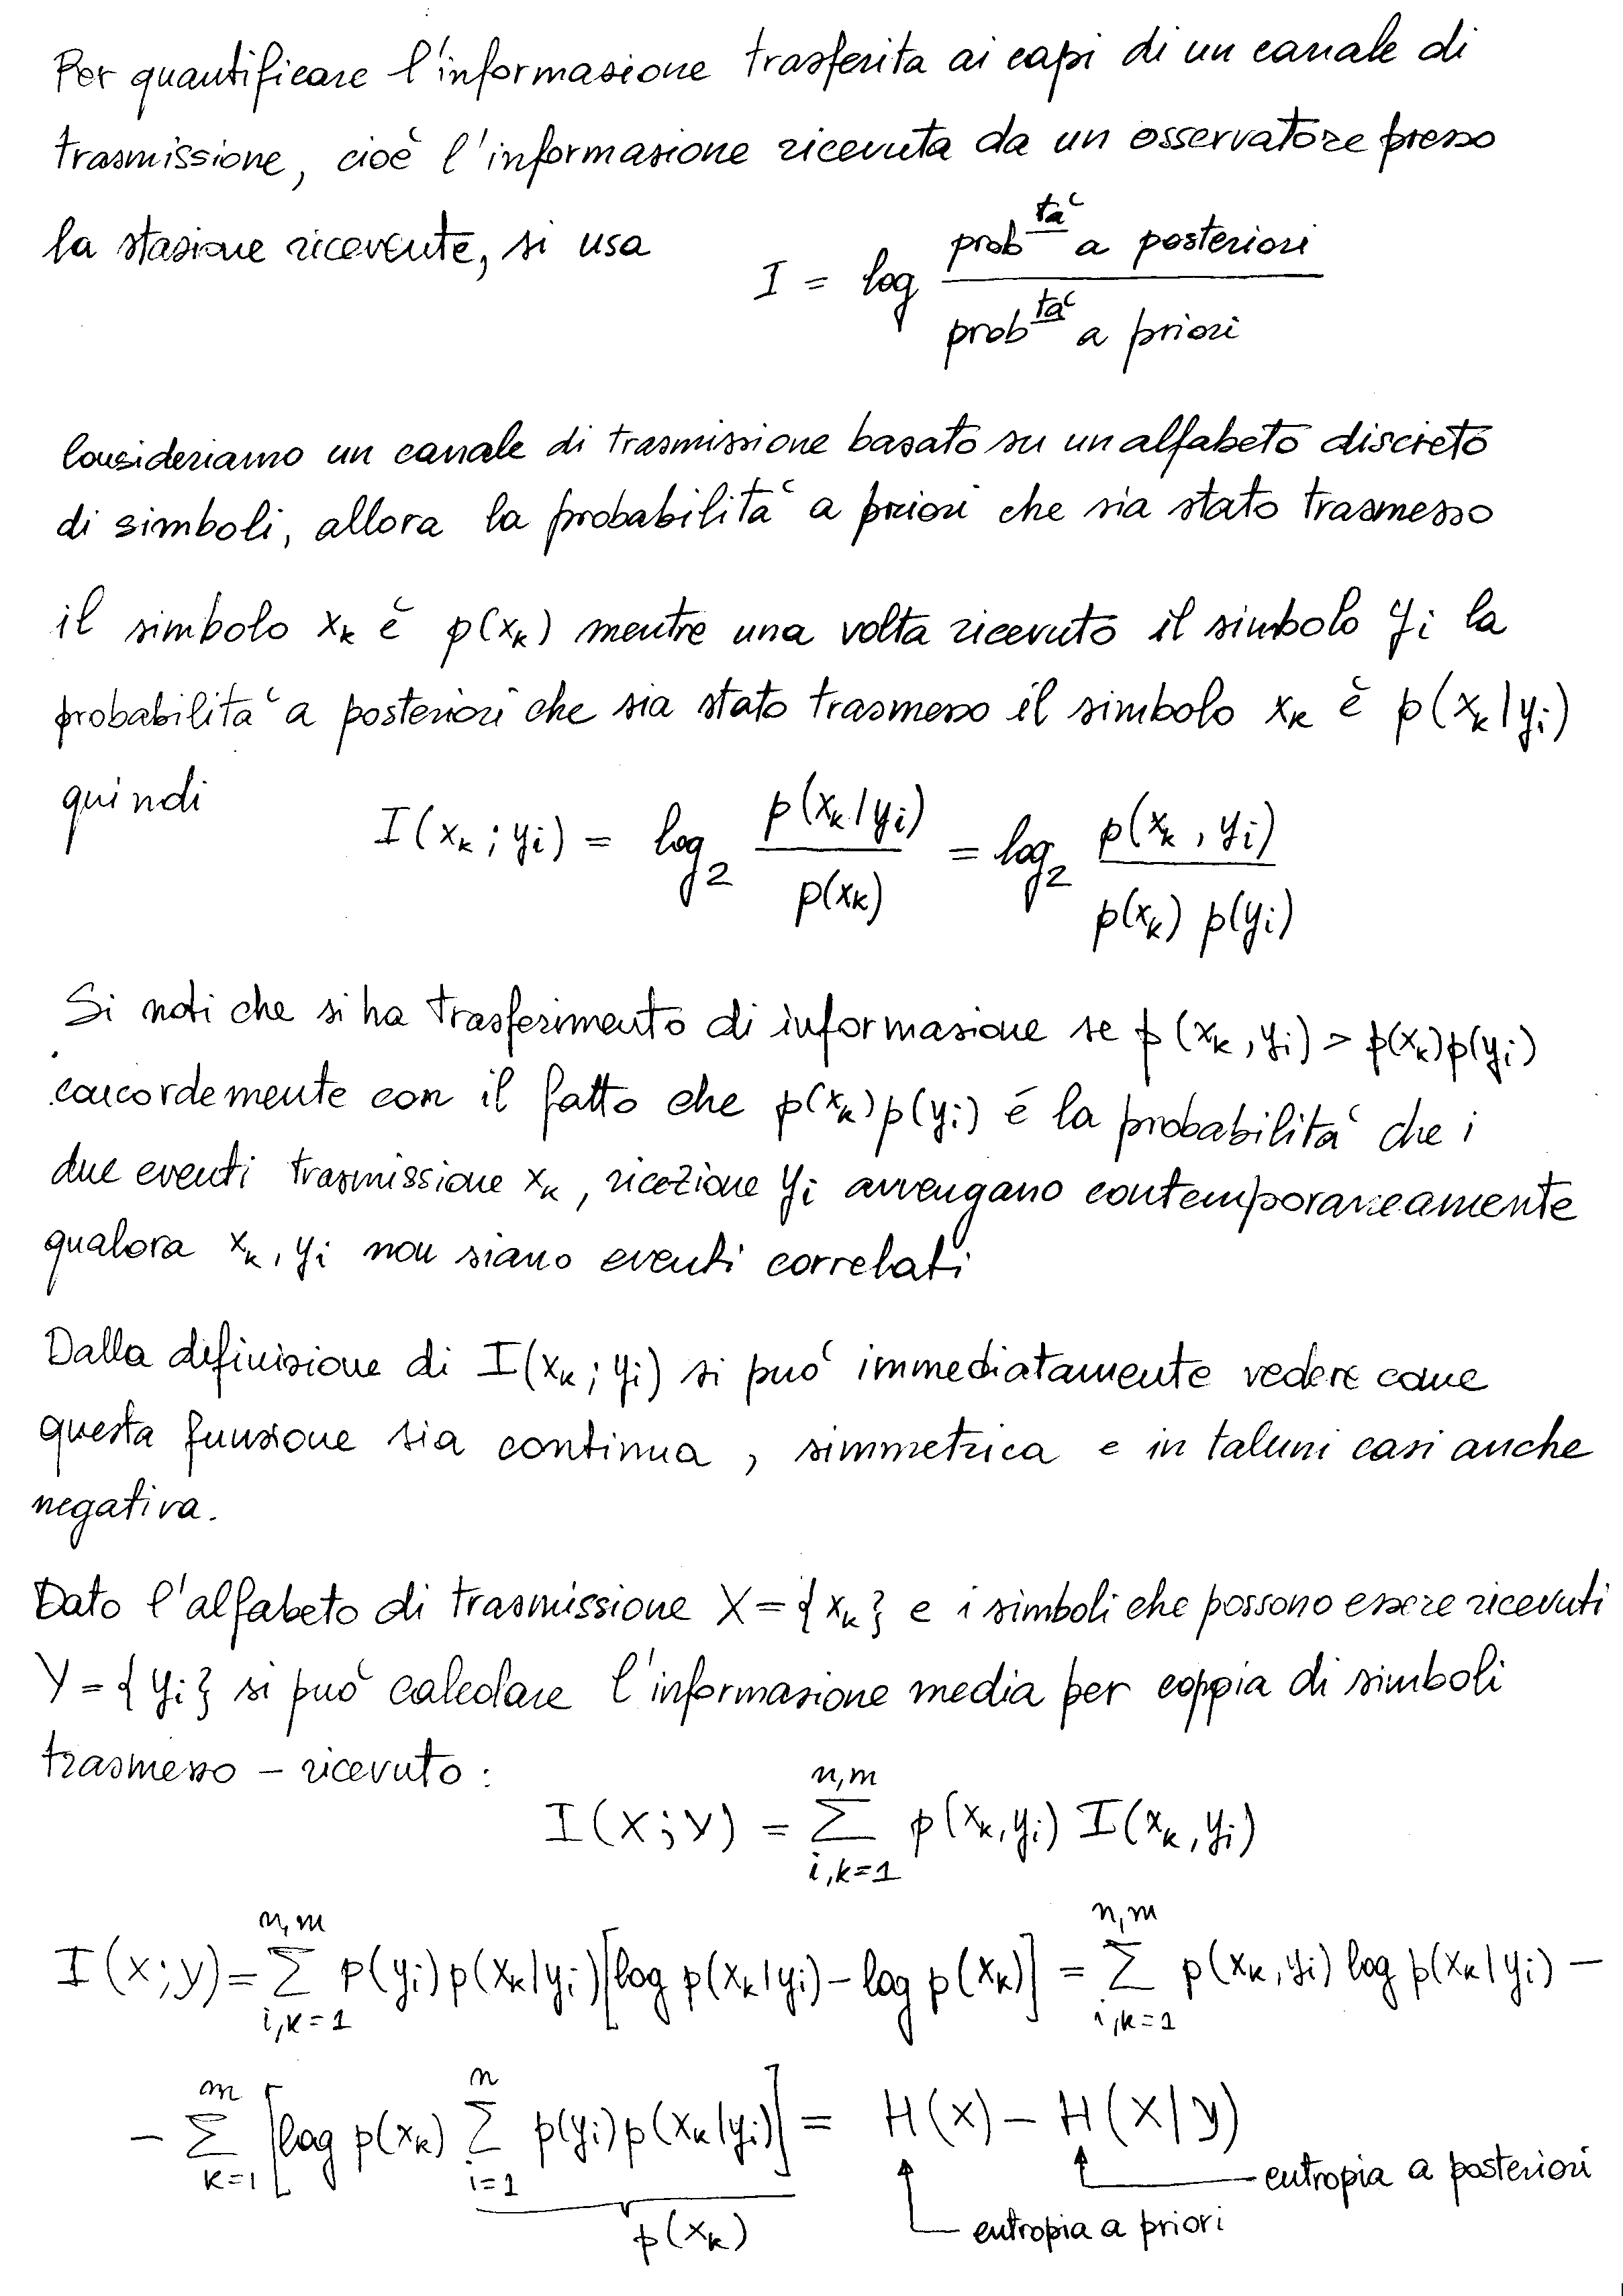 Per quantificare l'informazione trasferita ai capi di un canale di
trasmissione, cioè l'informazione ricevuta da un osservatore presso
la stazione ricevente, si usa
I = log (prob^tà a posteriori / prob^tà a priori)
Consideriamo un canale di trasmissione basato su un alfabeto discreto
di simboli, allora la probabilità a priori che sia stato trasmesso
il simbolo x_k è p(x_k) mentre una volta ricevuto il simbolo y_i la
probabilità a posteriori che sia stato trasmesso il simbolo x_k è p(x_k|y_i)
quindi
I(x_k; y_i) = log_2 p(x_k|y_i) / p(x_k) = log_2 p(x_k, y_i) / p(x_k) p(y_i)
Si noti che si ha trasferimento di informazione se p(x_k, y_i) > p(x_k)p(y_i)
concordemente con il fatto che p(x_k)p(y_i) è la probabilità che i
due eventi trasmissione x_k, ricezione y_i avvengano contemporaneamente
qualora x_k, y_i non siano eventi correlati
Dalla definizione di I(x_k; y_i) si può immediatamente vedere come
questa funzione sia continua, simmetrica e in taluni casi anche
negativa.
Dato l'alfabeto di trasmissione X = {x_k} e i simboli che possono essere ricevuti
Y = {y_i} si può calcolare l'informazione media per coppia di simboli
trasmesso - ricevuto :
I(X;Y) = Σ_{i,k=1}^{n,m} p(x_k, y_i) I(x_k, y_i)
I(X;Y) = Σ_{i,k=1}^{n,m} p(y_i) p(x_k|y_i) [log p(x_k|y_i) - log p(x_k)] = Σ_{i,k=1}^{n,m} p(x_k, y_i) log p(x_k|y_i) -
- Σ_{k=1}^{m} [log p(x_k) Σ_{i=1}^{n} p(y_i) p(x_k|y_i)] = H(X) - H(X|Y)
entropia a posteriori
p(x_k)
entropia a priori